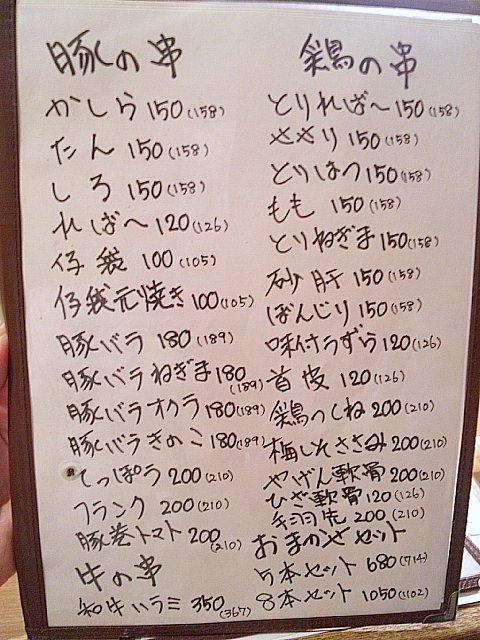 豚の串
かしら 150 (158)
たん 150 (158)
しろ 150 (158)
ればー 120 (126)
仔袋 100 (105)
仔袋元焼き 100 (105)
豚バラ 180 (189)
豚バラねぎま 180 (189)
豚バラオクラ 180 (189)
豚バラきのこ 180 (189)
てっぽう 200 (210)
フランク 200 (210)
豚巻トマト 200 (210)
牛の串
和牛ハラミ 350 (367)
鶏の串
とりればー 150 (158)
ささり 150 (158)
とりはつ 150 (158)
もも 150 (158)
とりねぎま 150 (158)
砂肝 150 (158)
ぼんじり 150 (158)
味付うずら 120 (126)
首皮 120 (126)
鶏つくね 200 (210)
梅しそささみ 200 (210)
やげん軟骨 200 (210)
ひざ軟骨 120 (126)
手羽先 200 (210)
おまかせセット
5本セット 680 (714)
8本セット 1050 (1102)